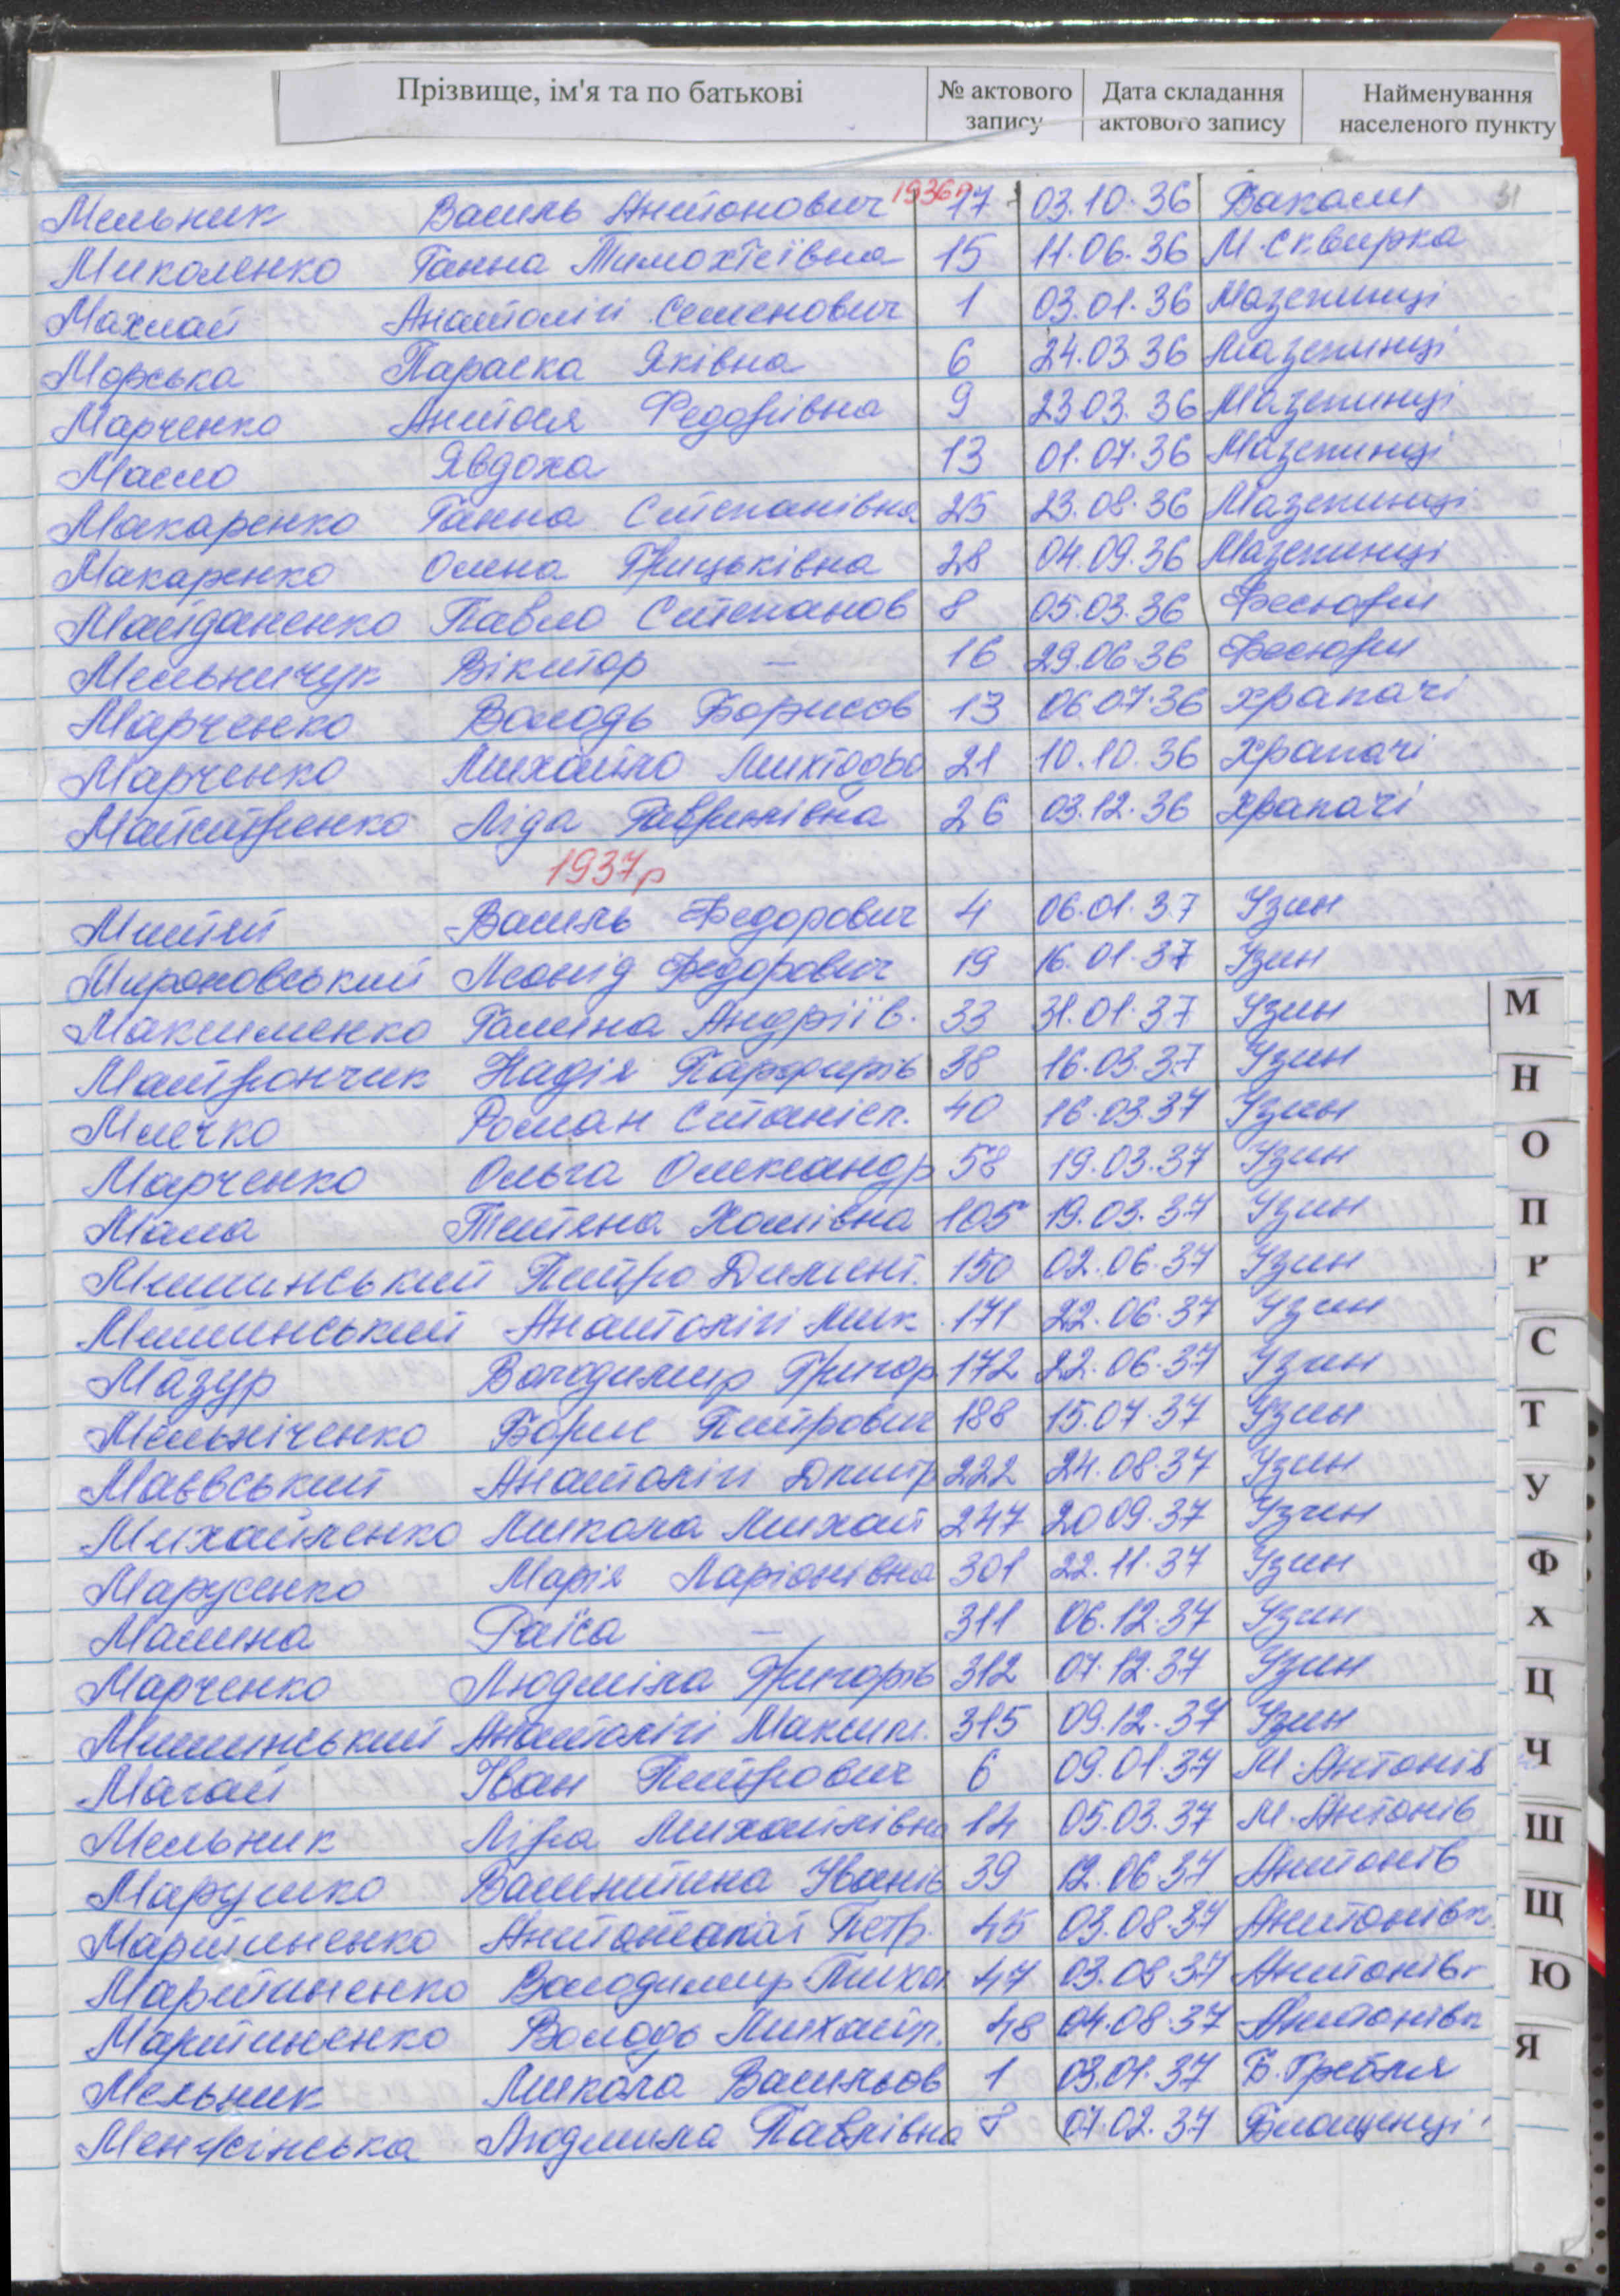 Прізвище, ім'я та по батькові № актового запису Дата складання актового запису Найменування населеного пункту
31
1936р
Мельник Василь Антонович 17 03.10.36 Вакали
Миколенко Ганна Тимохтеївна 15 11.06.36 М.Сквирка
Махлай Анатолій Семенович 1 03.01.36 Мазепинці
Морська Параска Яківна 6 24.03.36 Мазепинці
Марченко Антося Федорівна 9 23 03. 36 Мазепинці
Масло Явдоха 13 01.07.36 Мазепинці
Макаренко Ганна Степанівна 25 23.08.36 Мазепинці
Макаренко Олена Грицьківна 28 04.09.36 Мазепинці
Майданенко Павло Степанов 8 05.03.36 Фесюри
Мельничук Віктор — 16 29.06.36 Фесюри
Марченко Володь Борисов 13 06.07.36 Храпачі
Марченко Михайло 21 10.10.36 Храпачі
Майстренко Ліда Гаврилівна 26 03.12.36 Храпачі
1937р
Митяй Василь Федорович 4 06.01.37 Узин
Мироновський Леонід Федорович 19 16.01.37 Узин
Максименко Галина Андріїв. 33 31.01.37 Узин
Матрончик Надія Парфирів 38 16.03.37 Узин
Млечко Роман Станісл. 40 16.03.37 Узин
Марченко Ольга Олександр 58 19.03.37 Узин
Мала Тетяна Хомівна 105 19.03.37 Узин
Мишинський Петро Димент. 150 02.06.37 Узин
Мишинський Анатолій Мик. 171 22.06.37 Узин
Мазур Володимир Григор 172 22.06.37 Узин
Мельніченко Борис Петрович 188 15.07.37 Узин
Маєвський Анатолій Дмитр 222 24.08.37 Узин
Михайленко Микола Михай 247 20 09.37 Узин
Марусенко Марія Ларіонівна 301 22.11.37 Узин
Малина Раїса — 311 06.12.37 Узин
Марченко Людміла Григорів 312 07.12.37 Узин
Мишинський Анатолій Максим. 315 09.12.37 Узин
Магай Іван Петрович 6 09.01.37 М.Антонів
Мельник Ліра Михайлівна 14 05.03.37 М.Антонів
Марушко Валентина Іванів 39 12.06.37 Антонів
Мартиненко Петр. 45 03.08.37 Антонівк
Мартиненко Володимир 47 03.08.37 Антонівк
Мартиненко Володь Михайл. 48 04.08.37 Антонівк
Мельник Микола Васильов 1 03.01.37 Б.Гребля
Менжінська Людмила Павлівна 8 07.02.37 Блощинці
М
Н
О
П
Р
С
Т
У
Ф
Х
Ц
Ч
Ш
Щ
Ю
Я